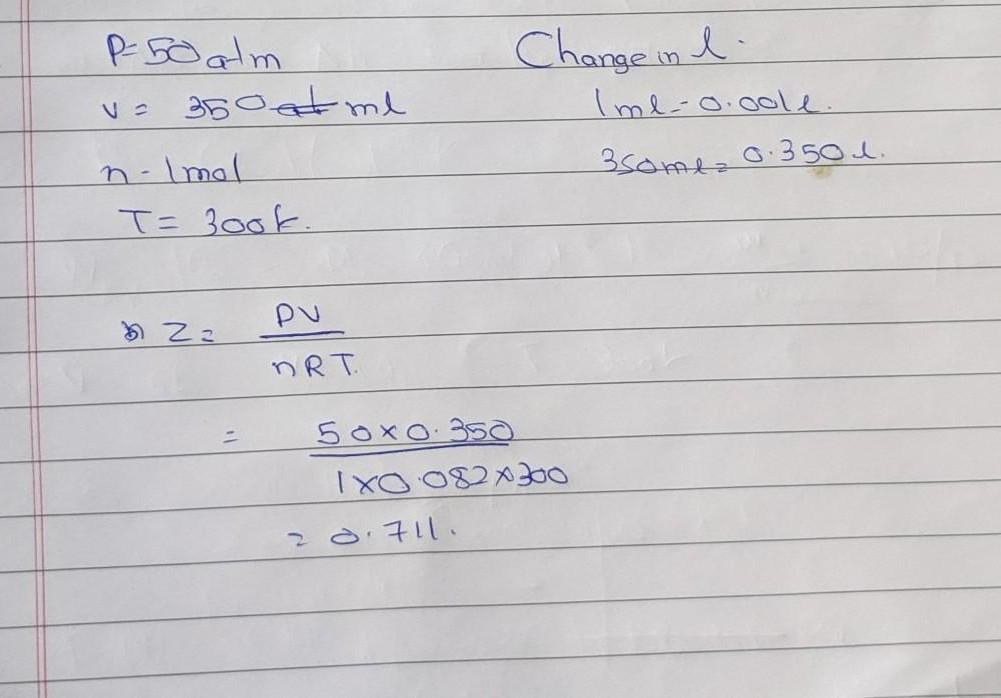 P=50 atm
V = 350 ml
n - 1 mol
T = 300k.
Change in l.
1 ml - 0.001 l.
350ml = 0.350 l.
Z = PV
nRT.
= 50×0.350
1×0.082×300
= 0.711.